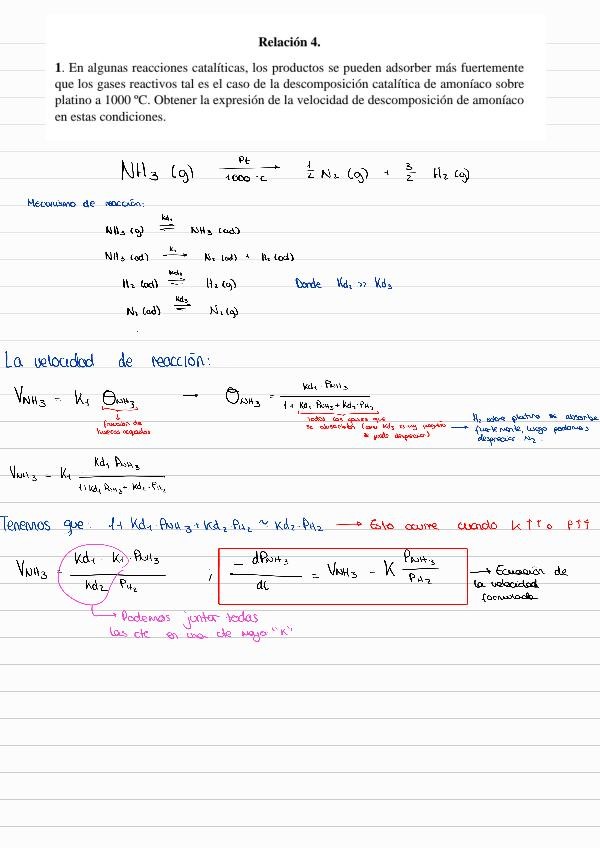 Relación 4.
1. En algunas reacciones catalíticas, los productos se pueden adsorber más fuertemente
que los gases reactivos tal es el caso de la descomposición catalítica de amoníaco sobre
platino a 1000 ºC. Obtener la expresión de la velocidad de descomposición de amoníaco
en estas condiciones.
NH3 (g) Pt 1000 ºC → 1/2 N2 (g) + 3/2 H2 (g)
Mecanismo de reacción:
NH3 (g) Kd1 ⇌ NH3 (ad)
NH3 (ad) K1 → N2 (ad) + H2 (ad)
H2 (ad) Kd2 ⇌ H2 (g) Donde Kd2 >> Kd3
N2 (ad) Kd3 ⇌ N2 (g)
La velocidad de reacción:
VNH3 = K1 ΘNH3 → ΘNH3 = Kd1 · PNH3 / 1 + Kd1 PNH3 + Kd2 · PH2
fracción de huecos ocupados
Todos los gases que se absorben (como Kd3 es muy pequeño se puede despreciar)
→ H2 sobre platino se absorbe fuertemente, luego podemos despreciar N2.
VNH3 = K1 Kd1 PNH3 / 1 + Kd1 PNH3 + Kd2 · PH2
Tenemos que: 1 + Kd1 · PNH3 + Kd2 · PH2 ~ Kd2 · PH2 → Esto ocurre cuando K↑↑ o P↑↑
VNH3 = Kd1 · K1 · PNH3 / Kd2 PH2 ; - dPNH3 / dt = VNH3 = K PNH3 / PH2 → Ecuación de
la velocidad
formulada
→ Podemos juntar todas
las cte en una cte nueva "K"